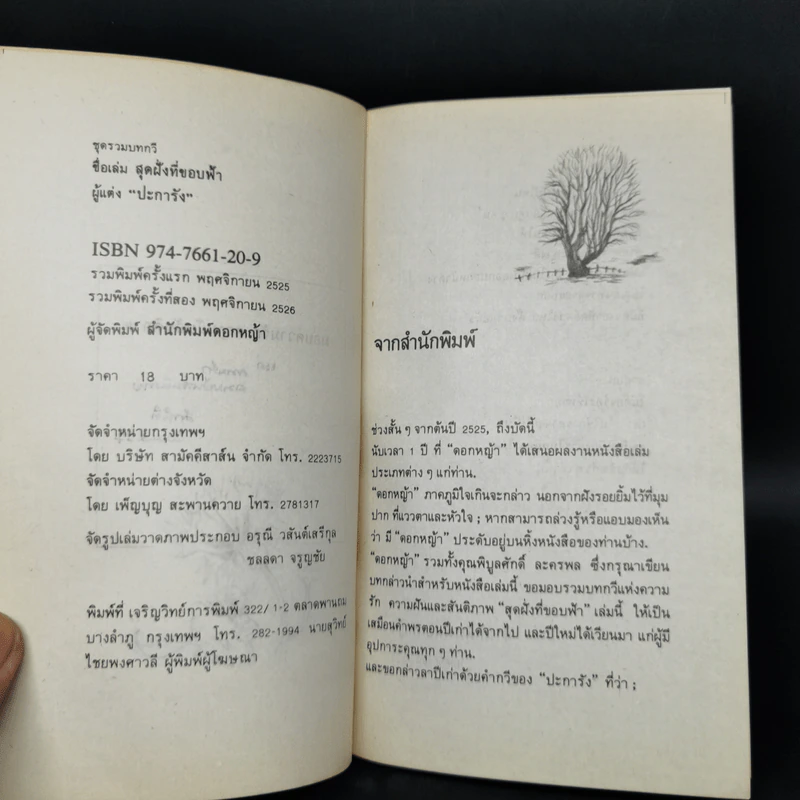 ชุดรวมบทกวี
ชื่อเล่ม สุดฝั่งที่ขอบฟ้า
ผู้แต่ง “ปะการัง”
ISBN 974-7661-20-9
รวมพิมพ์ครั้งแรก พฤศจิกายน 2525
รวมพิมพ์ครั้งที่สอง พฤศจิกายน 2526
ผู้จัดพิมพ์ สำนักพิมพ์ดอกหญ้า
ราคา 18 บาท
จัดจำหน่ายกรุงเทพฯ
โดย บริษัท สามัคคีสาส์น จำกัด โทร. 2223715
จัดจำหน่ายต่างจังหวัด
โดย เพ็ญบุญ สะพานควาย โทร. 2781317
จัดรูปเล่มวาดภาพประกอบ อรุณี วสันต์เสรีกุล
ชลลดา จรูญชัย
พิมพ์ที่ เจริญวิทย์การพิมพ์ 322/1-2 ตลาดพานถม
บางลำภู กรุงเทพฯ โทร. 282-1994 นายสุวิทย์
ไชยพงศาวลี ผู้พิมพ์ผู้โฆษณา
จากสำนักพิมพ์
ช่วงสั้น ๆ จากต้นปี 2525, ถึงบัดนี้
นับเวลา 1 ปี ที่ “ดอกหญ้า” ได้เสนอผลงานหนังสือเล่ม
ประเภทต่าง ๆ แก่ท่าน.
“ดอกหญ้า” ภาคภูมิใจเกินจะกล่าว นอกจากฝังรอยยิ้มไว้ที่มุม
ปาก ที่แววตาและหัวใจ ; หากสามารถล่วงรู้หรือแอบมองเห็น
ว่า มี “ดอกหญ้า” ประดับอยู่บนหิ้งหนังสือของท่านบ้าง.
“ดอกหญ้า” รวมทั้งคุณพิบูลศักดิ์ ละครพล ซึ่งกรุณาเขียน
บทกล่าวนำสำหรับหนังสือเล่มนี้ ขอมอบรวมบทกวีแห่งความ
รัก ความฝันและสันติภาพ “สุดฝั่งที่ขอบฟ้า” เล่มนี้ ให้เป็น
เสมือนคำพรตอนปีเก่าได้จากไป และปีใหม่ได้เวียนมา แก่ผู้มี
อุปการะคุณทุก ๆ ท่าน.
และขอกล่าวลาปีเก่าด้วยคำกวีของ “ปะการัง” ที่ว่า ;